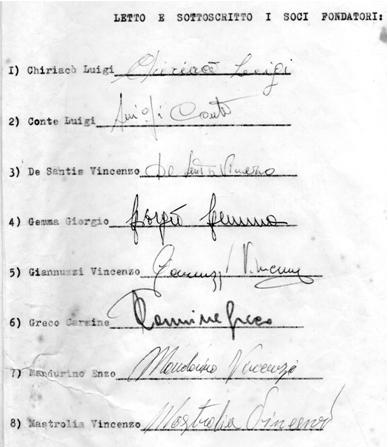 LETTO E SOTTOSCRITTO I SOCI FONDATORI:
I) Chiriacò Luigi Chiriacò Luigi
2) Conte Luigi Luigi Conte
3) De Santis Vincenzo De Santis Vincenzo
4) Gemma Giorgio Giorgio Gemma
5) Giannuzzi Vincenzo Giannuzzi Vincenzo
6) Greco Carmine Carmine Greco
7) Mandurino Enzo Mandurino Vincenzo
8) Mastrolia Vincenzo Mastrolia Vincenzo